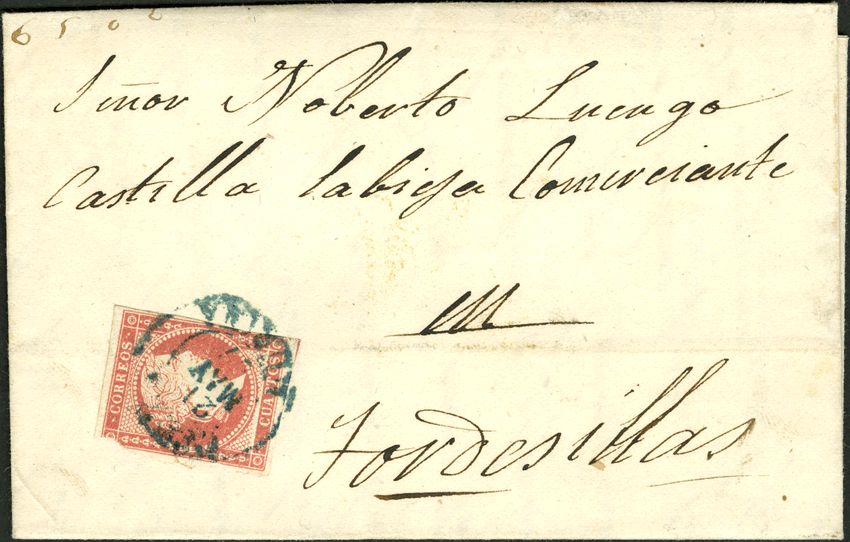 6502
Señor Noberto Luengo
Castilla labieja Comerciante
en
Tordesillas
CORREOS
CUARTOS
MAY